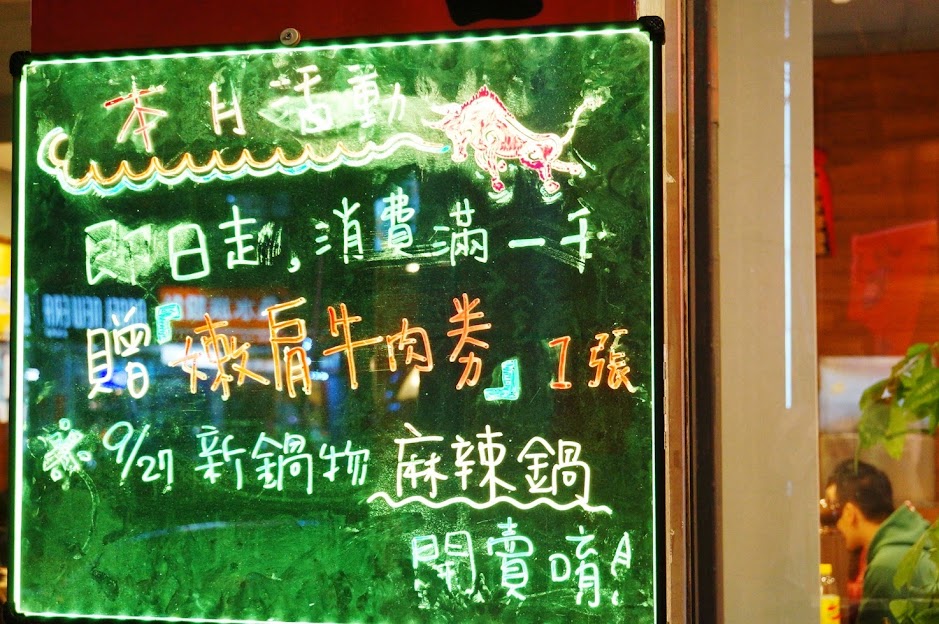 本月活動
即日起,消費滿一千
贈『嫩肩牛肉券』1張
※9/27 新鍋物 麻辣鍋
開賣唷!